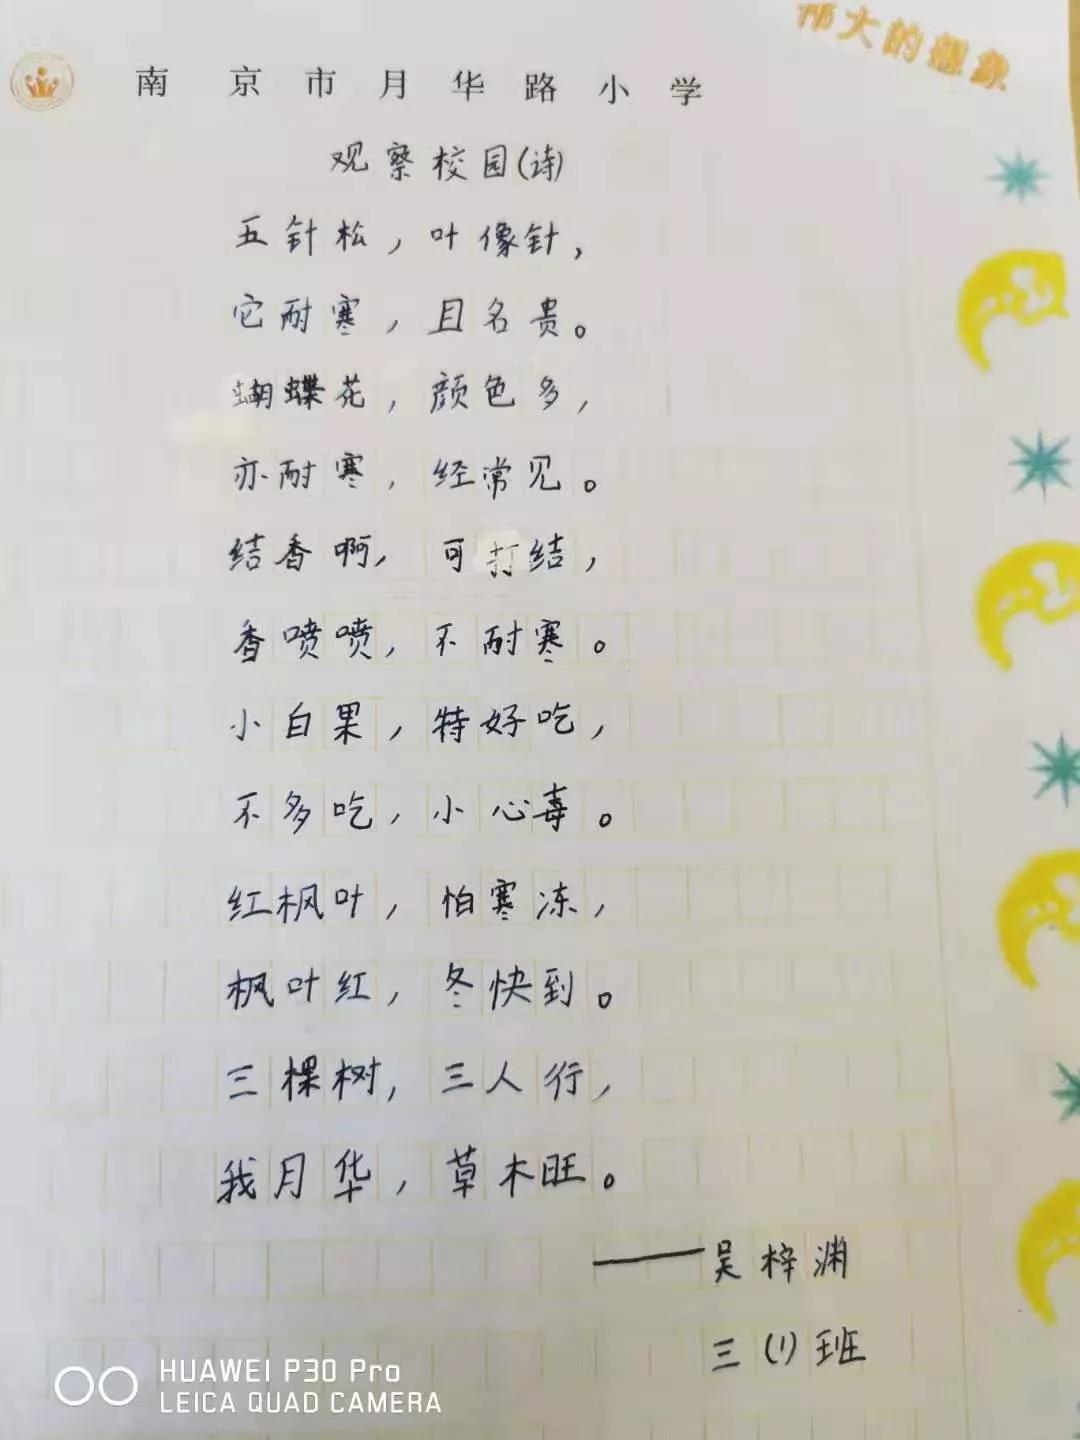 伟大的想象
南京市月华路小学
观察校园(诗)
五针松，叶像针，
它耐寒，且名贵。
蝴蝶花，颜色多，
亦耐寒，经常见。
结香啊，可打结，
香喷喷，不耐寒。
小白果，特好吃，
不多吃，小心毒。
红枫叶，怕寒冻，
枫叶红，冬快到。
三棵树，三人行，
我月华，草木旺。
——吴梓渊
三(1)班
HUAWEI P30 Pro
LEICA QUAD CAMERA